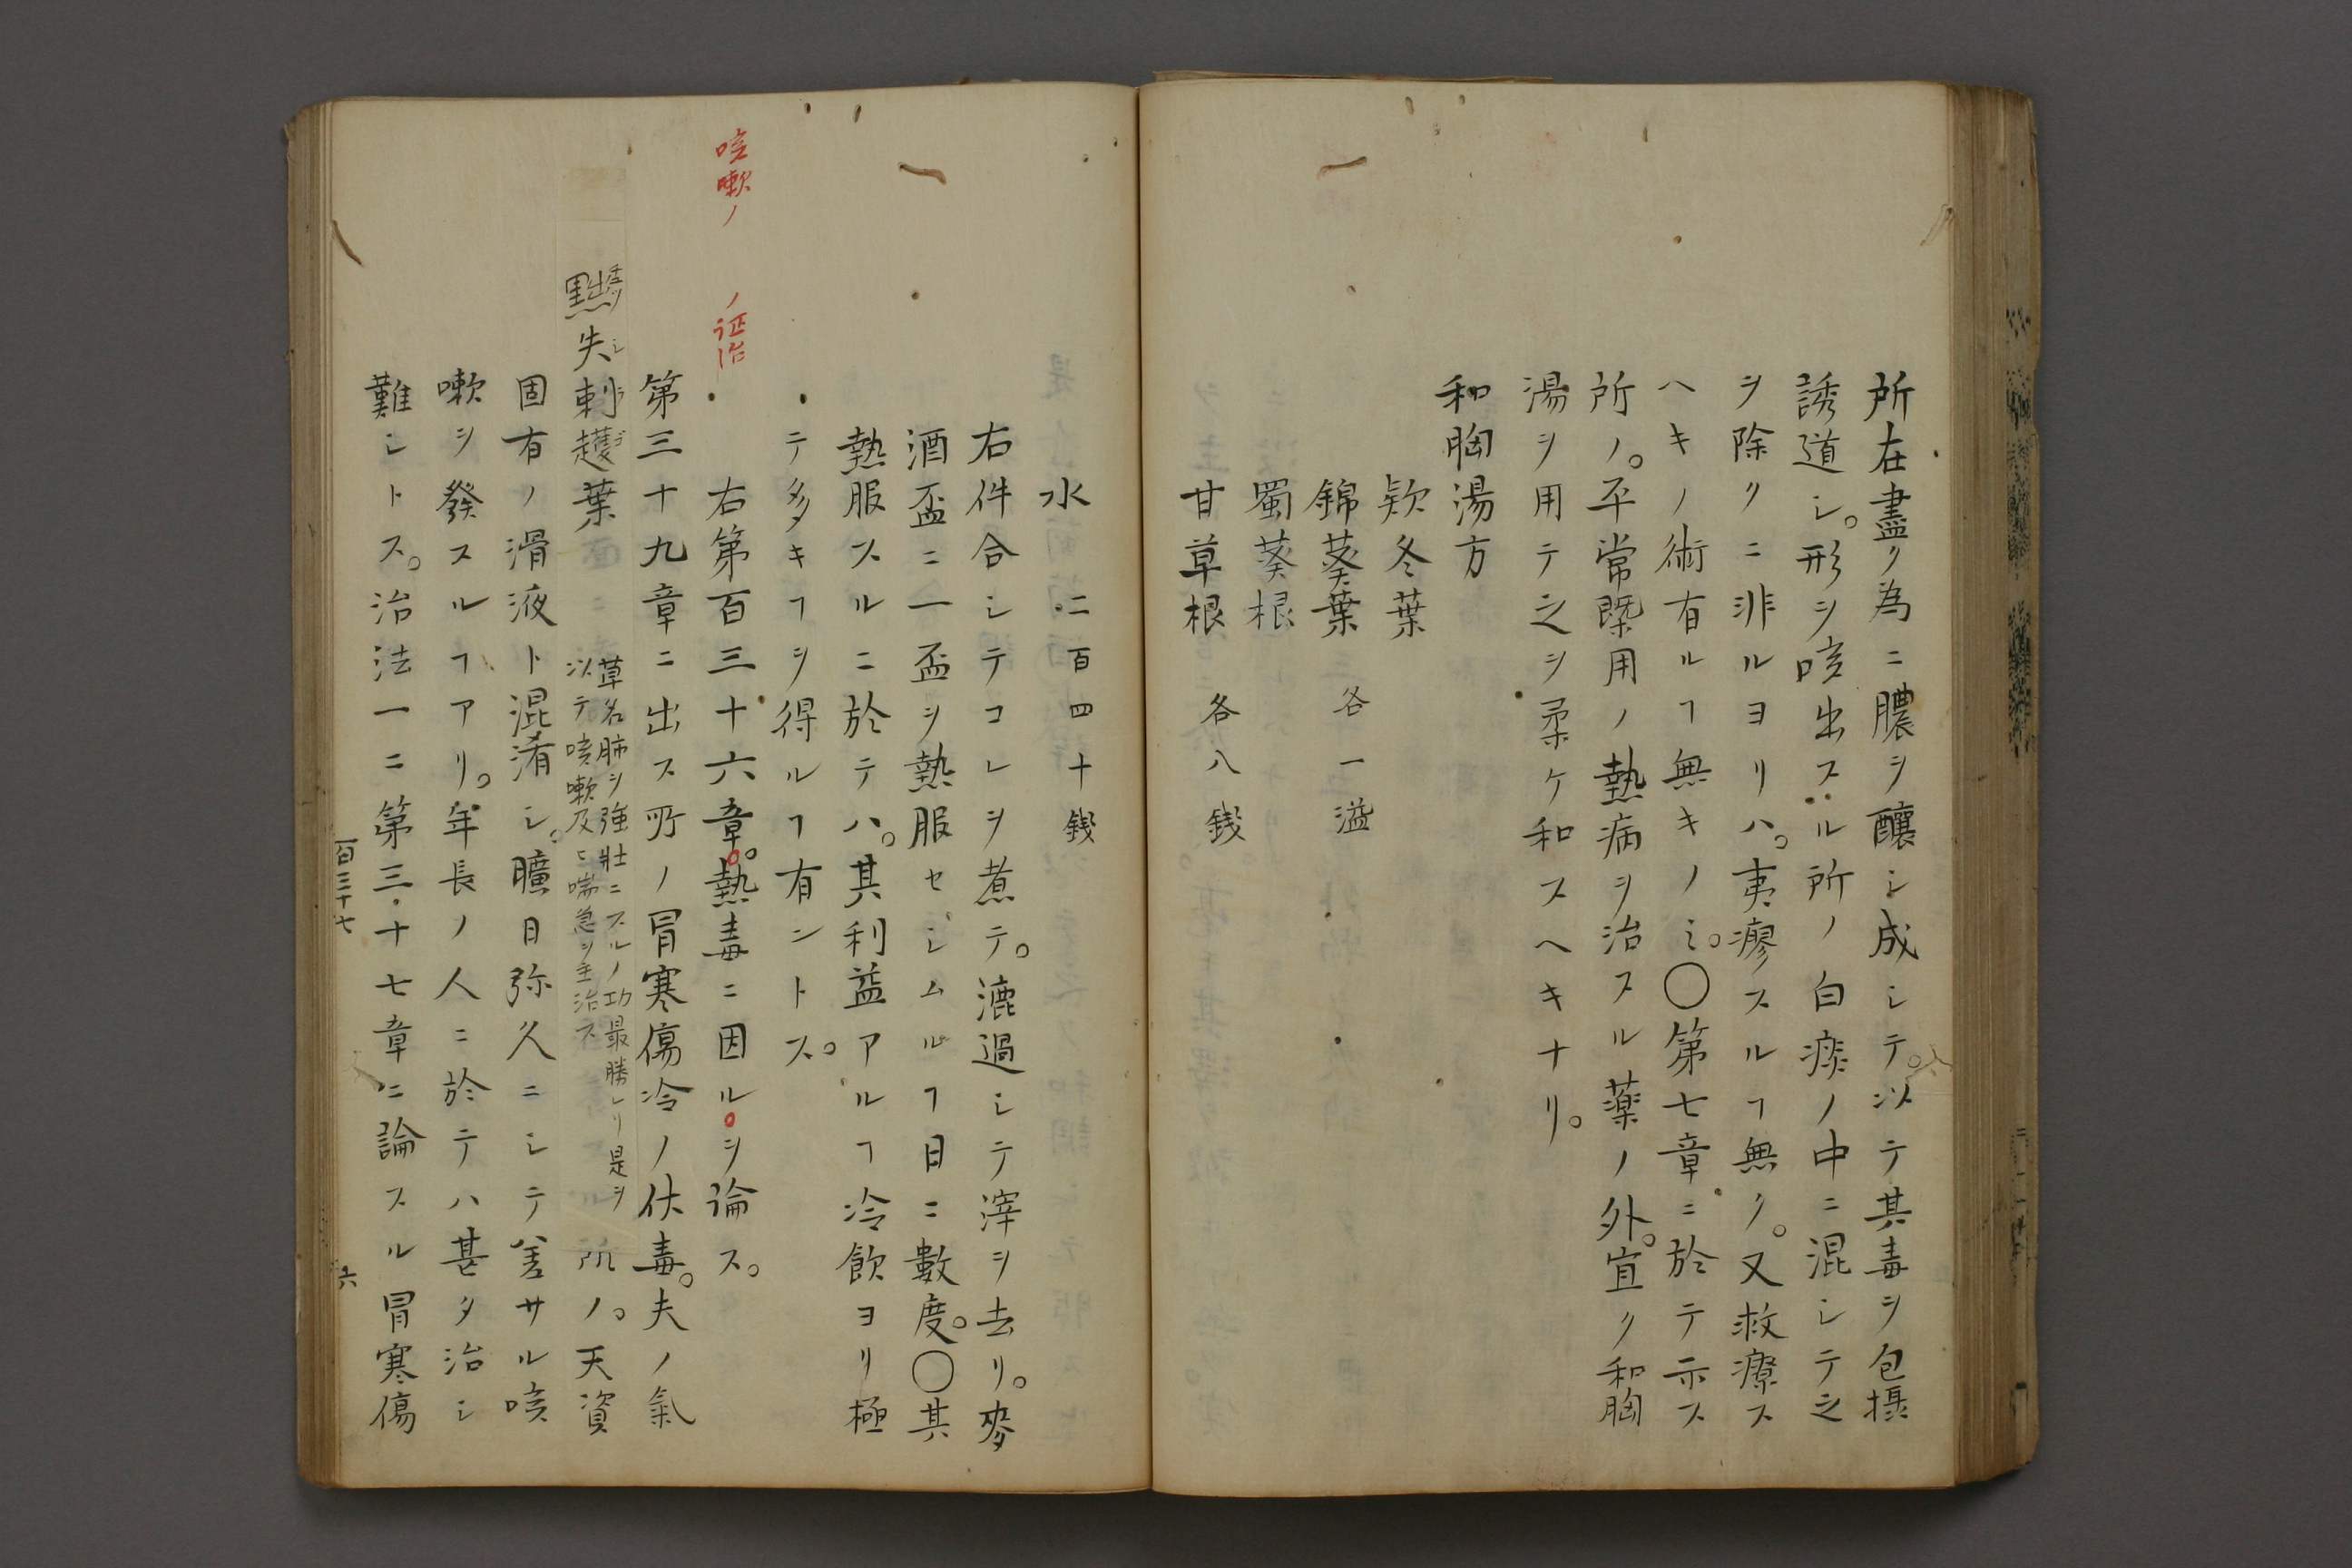 所在盡ク為ニ膿ヲ釀シ成シテ。以テ其毒ヲ包摂
誘道シ。形ヲ咳出スル所ノ白痰ノ中ニ混シテ之
ヲ除クニ非ルヨリハ。夷瘳スルヿ無ク。又救療ス
ヘキノ術有ルヿ無キノミ。〇第七章ニ於テ示ス
所ノ。平常既用ノ熱病ヲ治スル薬ノ外。宜ク和胸
湯ヲ用テ之ヲ柔ケ和スヘキナリ。
和胸湯方
欵冬葉
錦葵葉 各一溢
蜀葵根
甘草根 各八錢
水 二百四十錢
右件合シテコレヲ煮テ。漉過シテ滓ヲ去リ。麥
酒盃ニ一盃ヲ熱服セシムルヿ日ニ數度。〇其
熱服スルニ於テハ。其利益アルヿ冷飲ヨリ極
テ多キヿヲ得ルヿ有ントス。
咳嗽ノ
ノ証治
右第百三十六章。熱毒ニ因ルヲ論ス。
第三十九章ニ出ス所ノ冒寒傷冷ノ伏毒。夫ノ氣
失刺護葉
草名肺ヲ強壮ニスルノ功最勝レリ是ヲ
以テ咳嗽及ヒ喘急ヲ主治ス
所ノ。天資
固有ノ滑液ト混淆シ。曠日弥久ニシテ差サル咳
嗽ヲ發スルヿアリ。年長ノ人ニ於テハ甚タ治シ
難シトス。治法一ニ第三十七章ニ論スル冒寒傷
百三十七
六